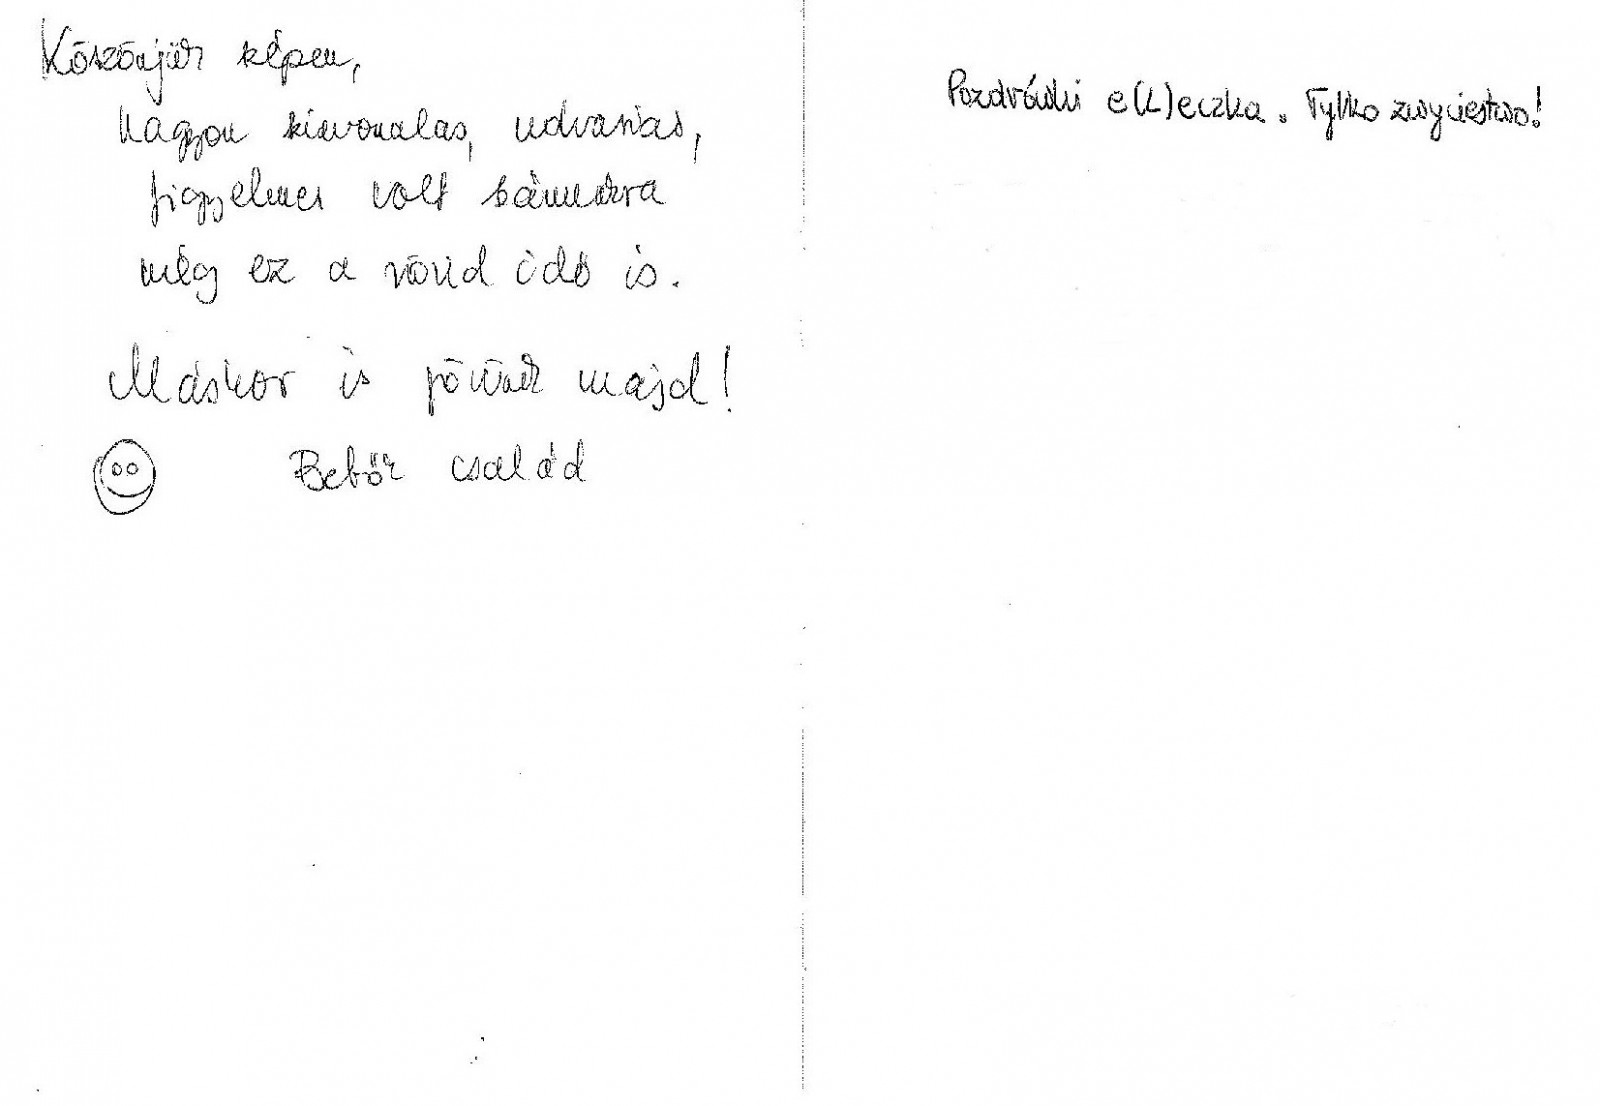 Köszönjük szépen,
Nagyon színvonalas, udvarias,
figyelmes volt számunkra
még ez a rövid idő is.
Máskor is jövünk majd!
család
Pozdrówki e(L)eczka. Tylko zwycięstwo!